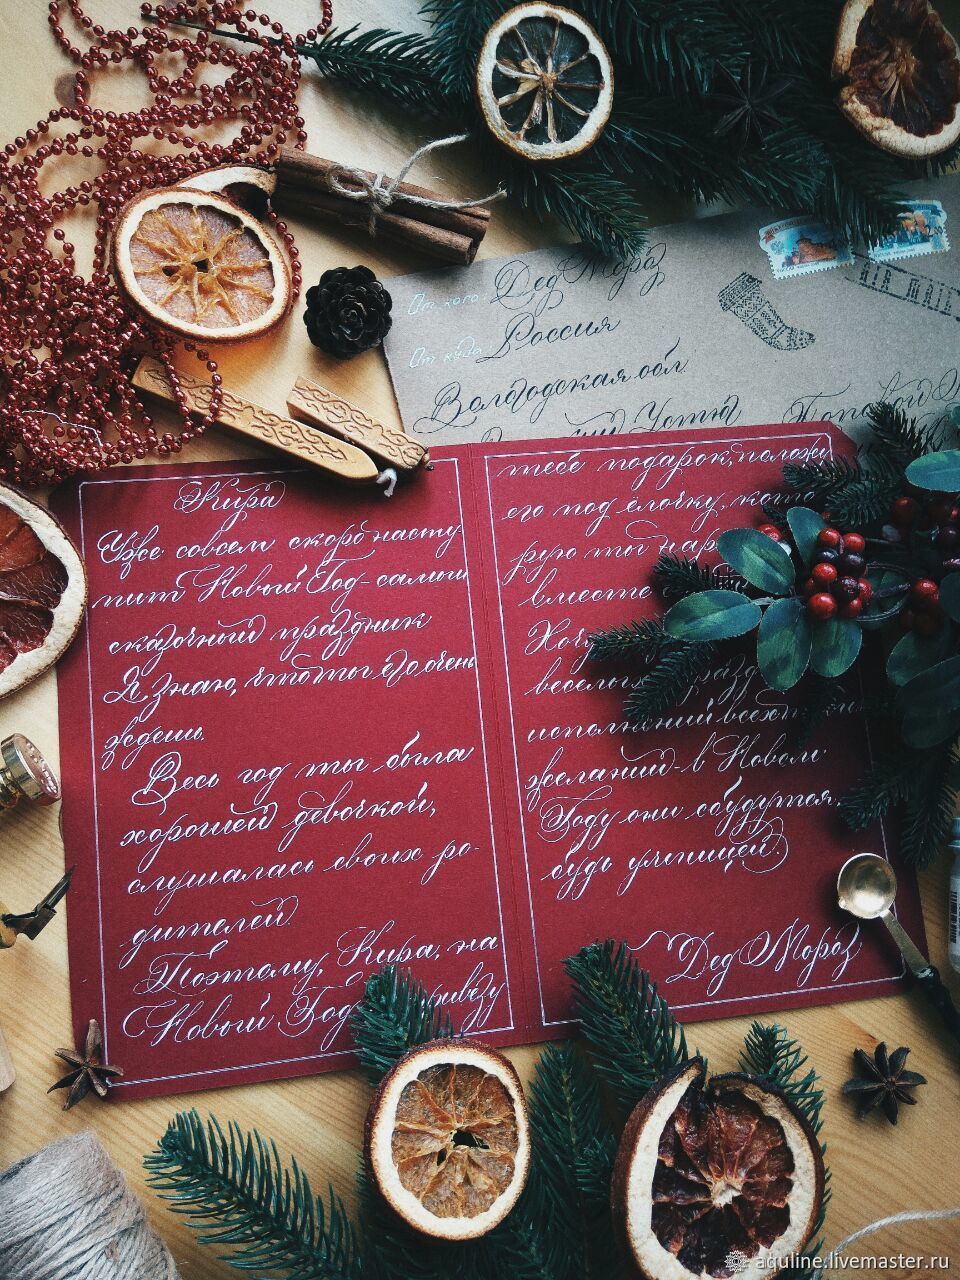 От кого: Дед Мороз
От куда: Россия
Вологодская обл.
Устюг
AIR MAIL
Кира
Уже совсем скоро насту
пит Новый Год - самый
сказочный праздник
Я знаю, что ты его очень
ждешь.
Весь год ты была
хорошей девочкой,
слушалась своих ро-
дителей.
Поэтому, Кира, на
Новый Год
тебе подарок, положу
его под ёлочку, кото
рую ты
вместе
веселых
исполнений всех
желаний - в Новом
Году они сбудутся,
будь умницей.
Дед Мороз
aquline.livemaster.ru